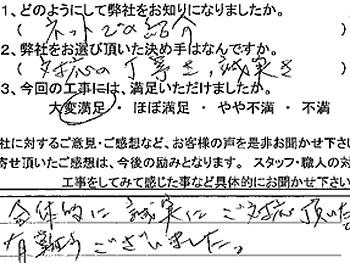 1、どのようにして弊社をお知りになりましたか。
(ネットでの紹介
2、弊社をお選び頂いた決め手はなんですか。
(対応の丁寧さ,誠実さ
3、今回の工事には、満足いただけましたか。
大変満足・ほぼ満足・やや不満・不満
社に対するご意見・ご感想など、お客様の声を是非お聞かせ下さい
寄せ頂いたご感想は、今後の励みとなります。スタッフ・職人の対
工事をしてみて感じた事など具体的にお聞かせ下さい
全体的に誠実にご対応頂いた
有難うございました。